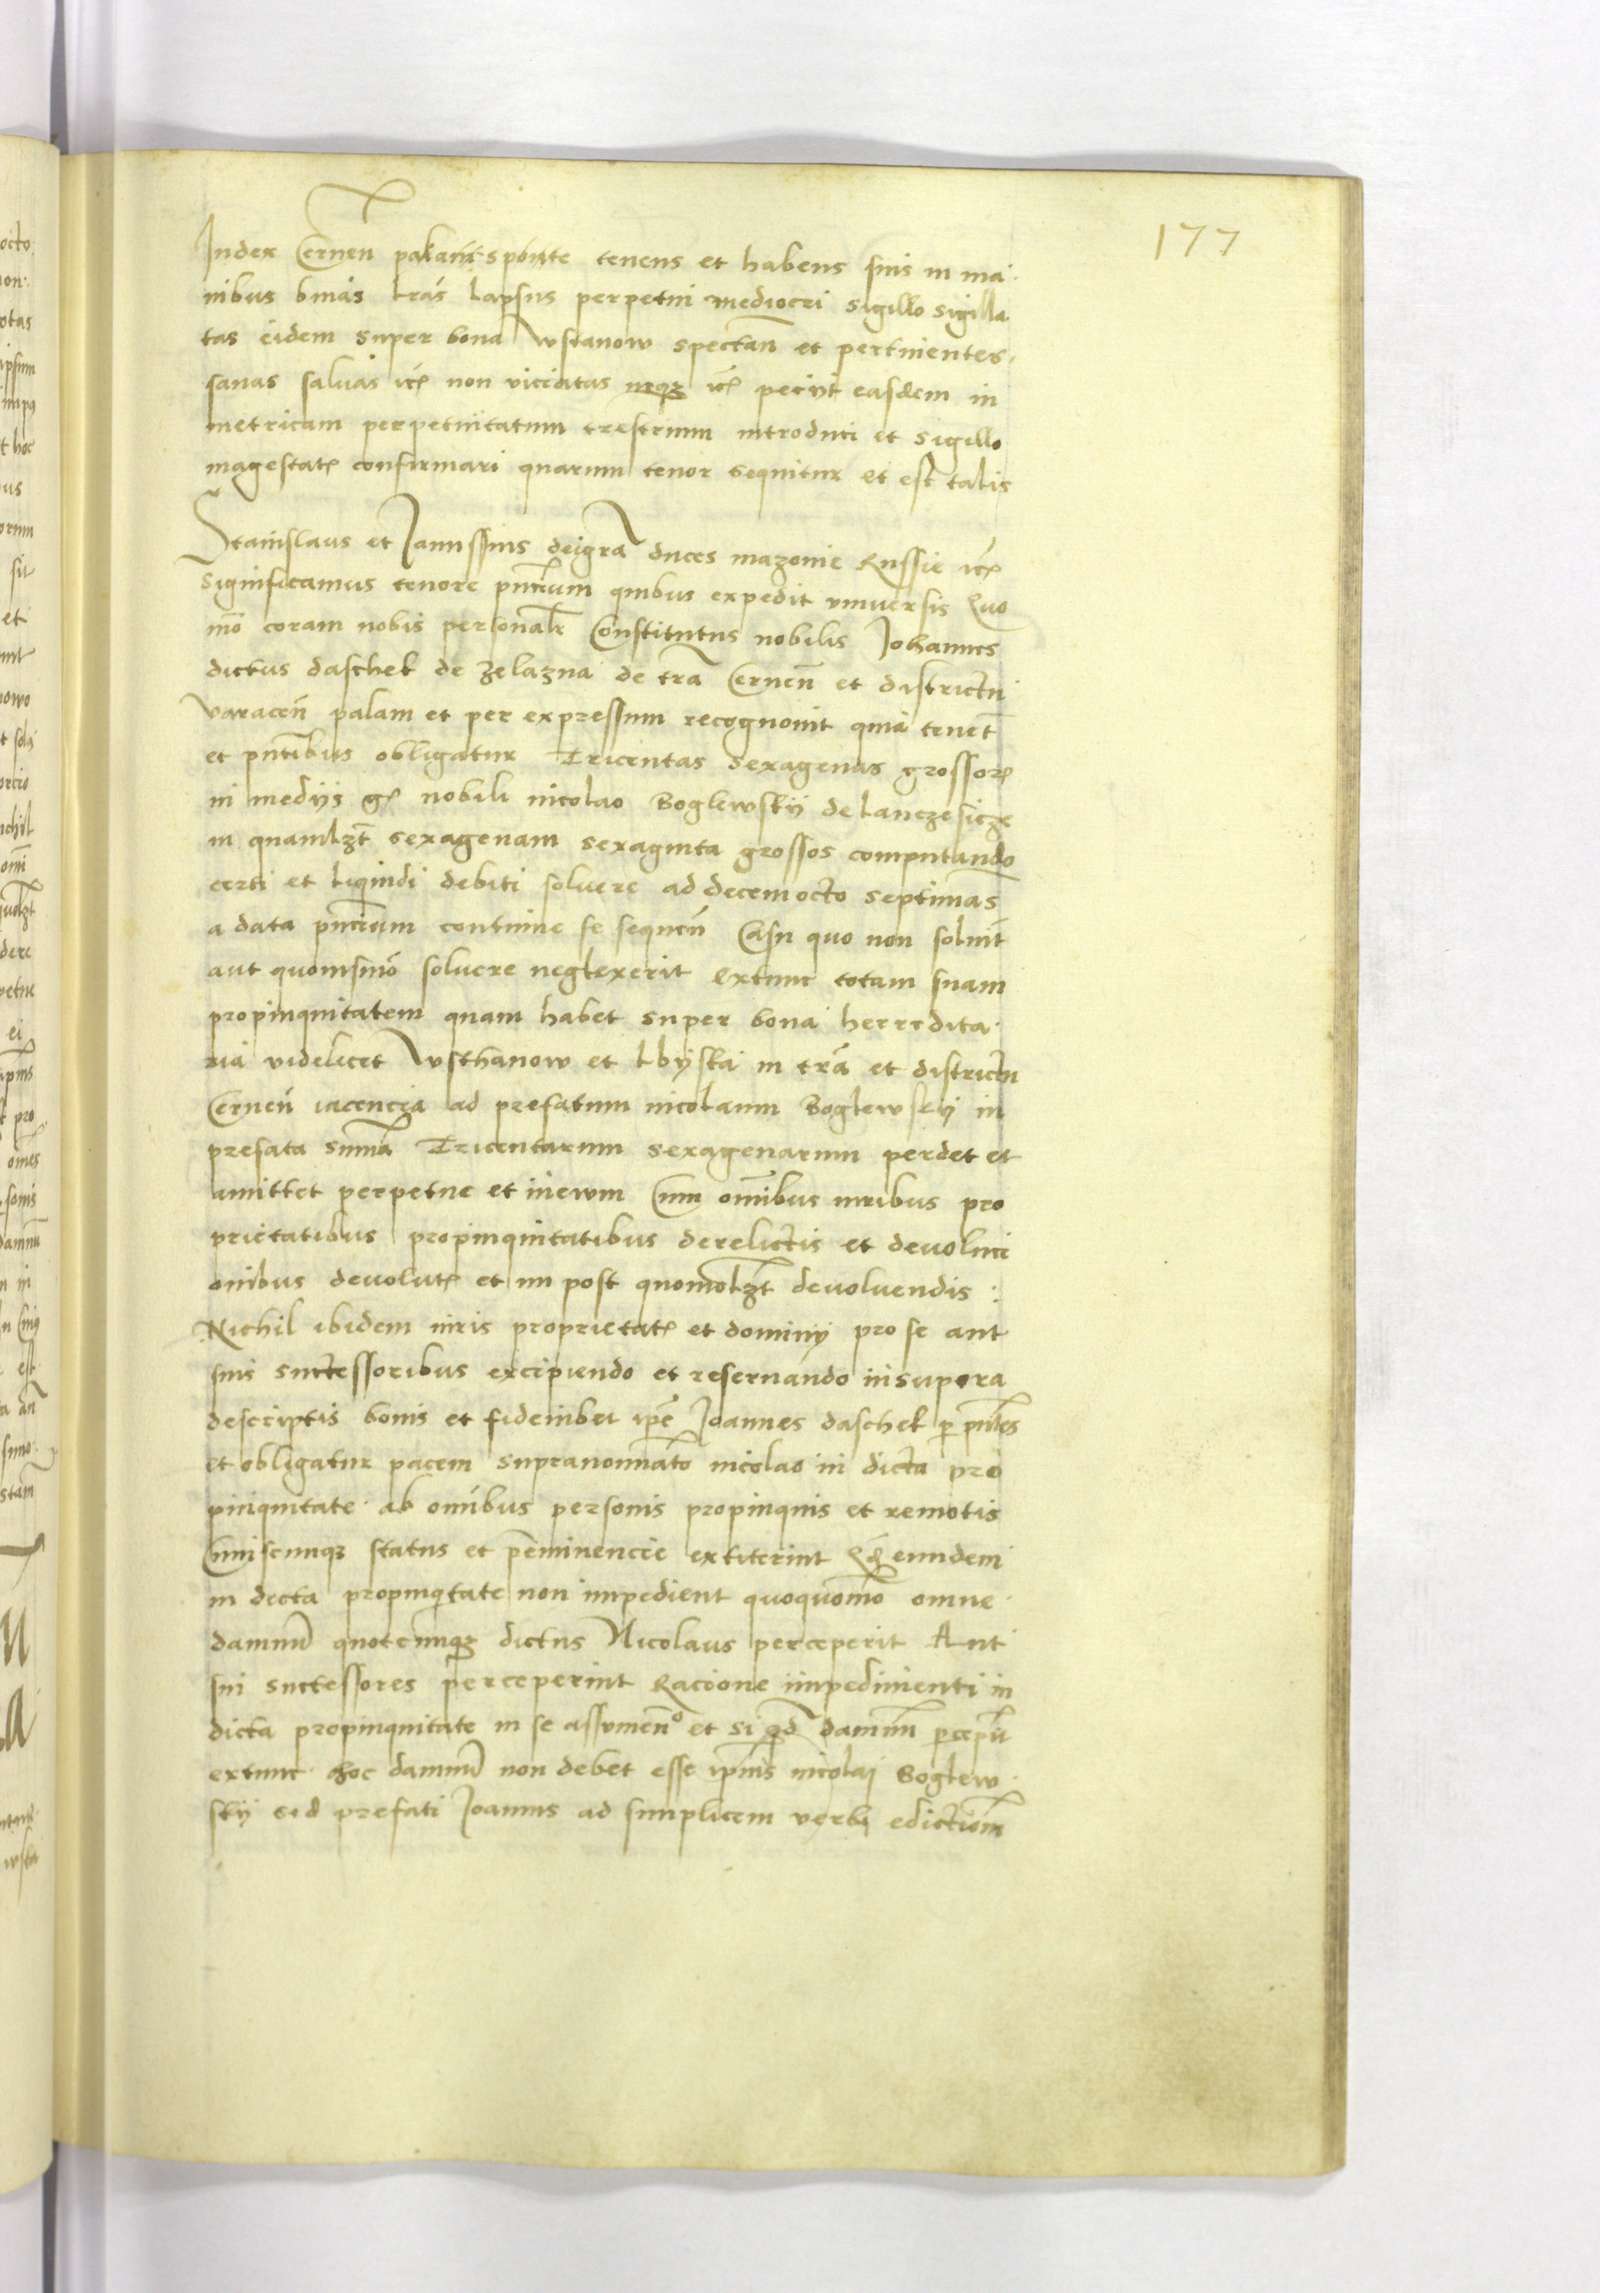 177
Iudex Cernen palam sponte tenens et habens suis in ma
nibus binas lras lapsus perpetui mediocri sigillo sigilla
tas eidem super bona Wstanow spectan et pertinentes
sanas saluas etc non viciatas petiit easdem in
metricam perpetuitatum trestrium introduci et sigillo
magestatis confirmari quarum tenor sequitur et est talis
Stanislaus et Janussius dei gra duces mazouie Russie etc
Significamus tenore pntium quibus expedit vniuersis Quo
mo coram nobis personalr Constitutus nobilis Johannes
dictus daschek de zelazna de tra Cernen et districtu
Varacen palam et per expressum recognouit quia tenet
et pntibus obligatur Tricentas sexagenas grossor
in medijs gr nobili nicolao Boglewskij de lanczesicze
in quamlzt sexagenam sexaginta grossos computando
certi et liquidi debiti soluere ad decem octo septimas
a data pntium continue se sequen Casu quo non soluit
aut quouismo soluere neglexerit extunc totam suam
propinquitatem quam habet super bona hereredita
ria videlicet Wsthanow et lbijska in tra et districtu
Cernen iacencia ad prefatum nicolaum Boglewskij in
prefata suma Tricentarum sexagenarum perdet et
amittet perpetue et in ewm Cum omibus iuribus pro
prietatibus propinquitatibus derelictis et deuoluci
onibus deuolutis et im post quomolzt deuoluendis :
Nichil ibidem iuris proprietatis et dominij pro se aut
suis successoribus excipiendo et reseruando insupera
descriptis bonis et fideiubet ipe Joannes daschek p pntes
et obligatur pacem supranominato nicolao in dicta pro
pinquitate ab omibus personis propinquis et remotis
Cuiuscunqz status et peminencie extiterint Qd eundem
in decta propinqtate non impedient quoquomo omne
damnu quotcunqz dictus Nicolaus perceperit Aut
sui successores perceperint Racione impedimenti in
dicta propinquitate in se assumeno et si qd damnu pcepit
extunc hoc damnu non debet esse ipius nicolaj Boglew
skij sed prefati Joannis ad simplicem verbi edictiom